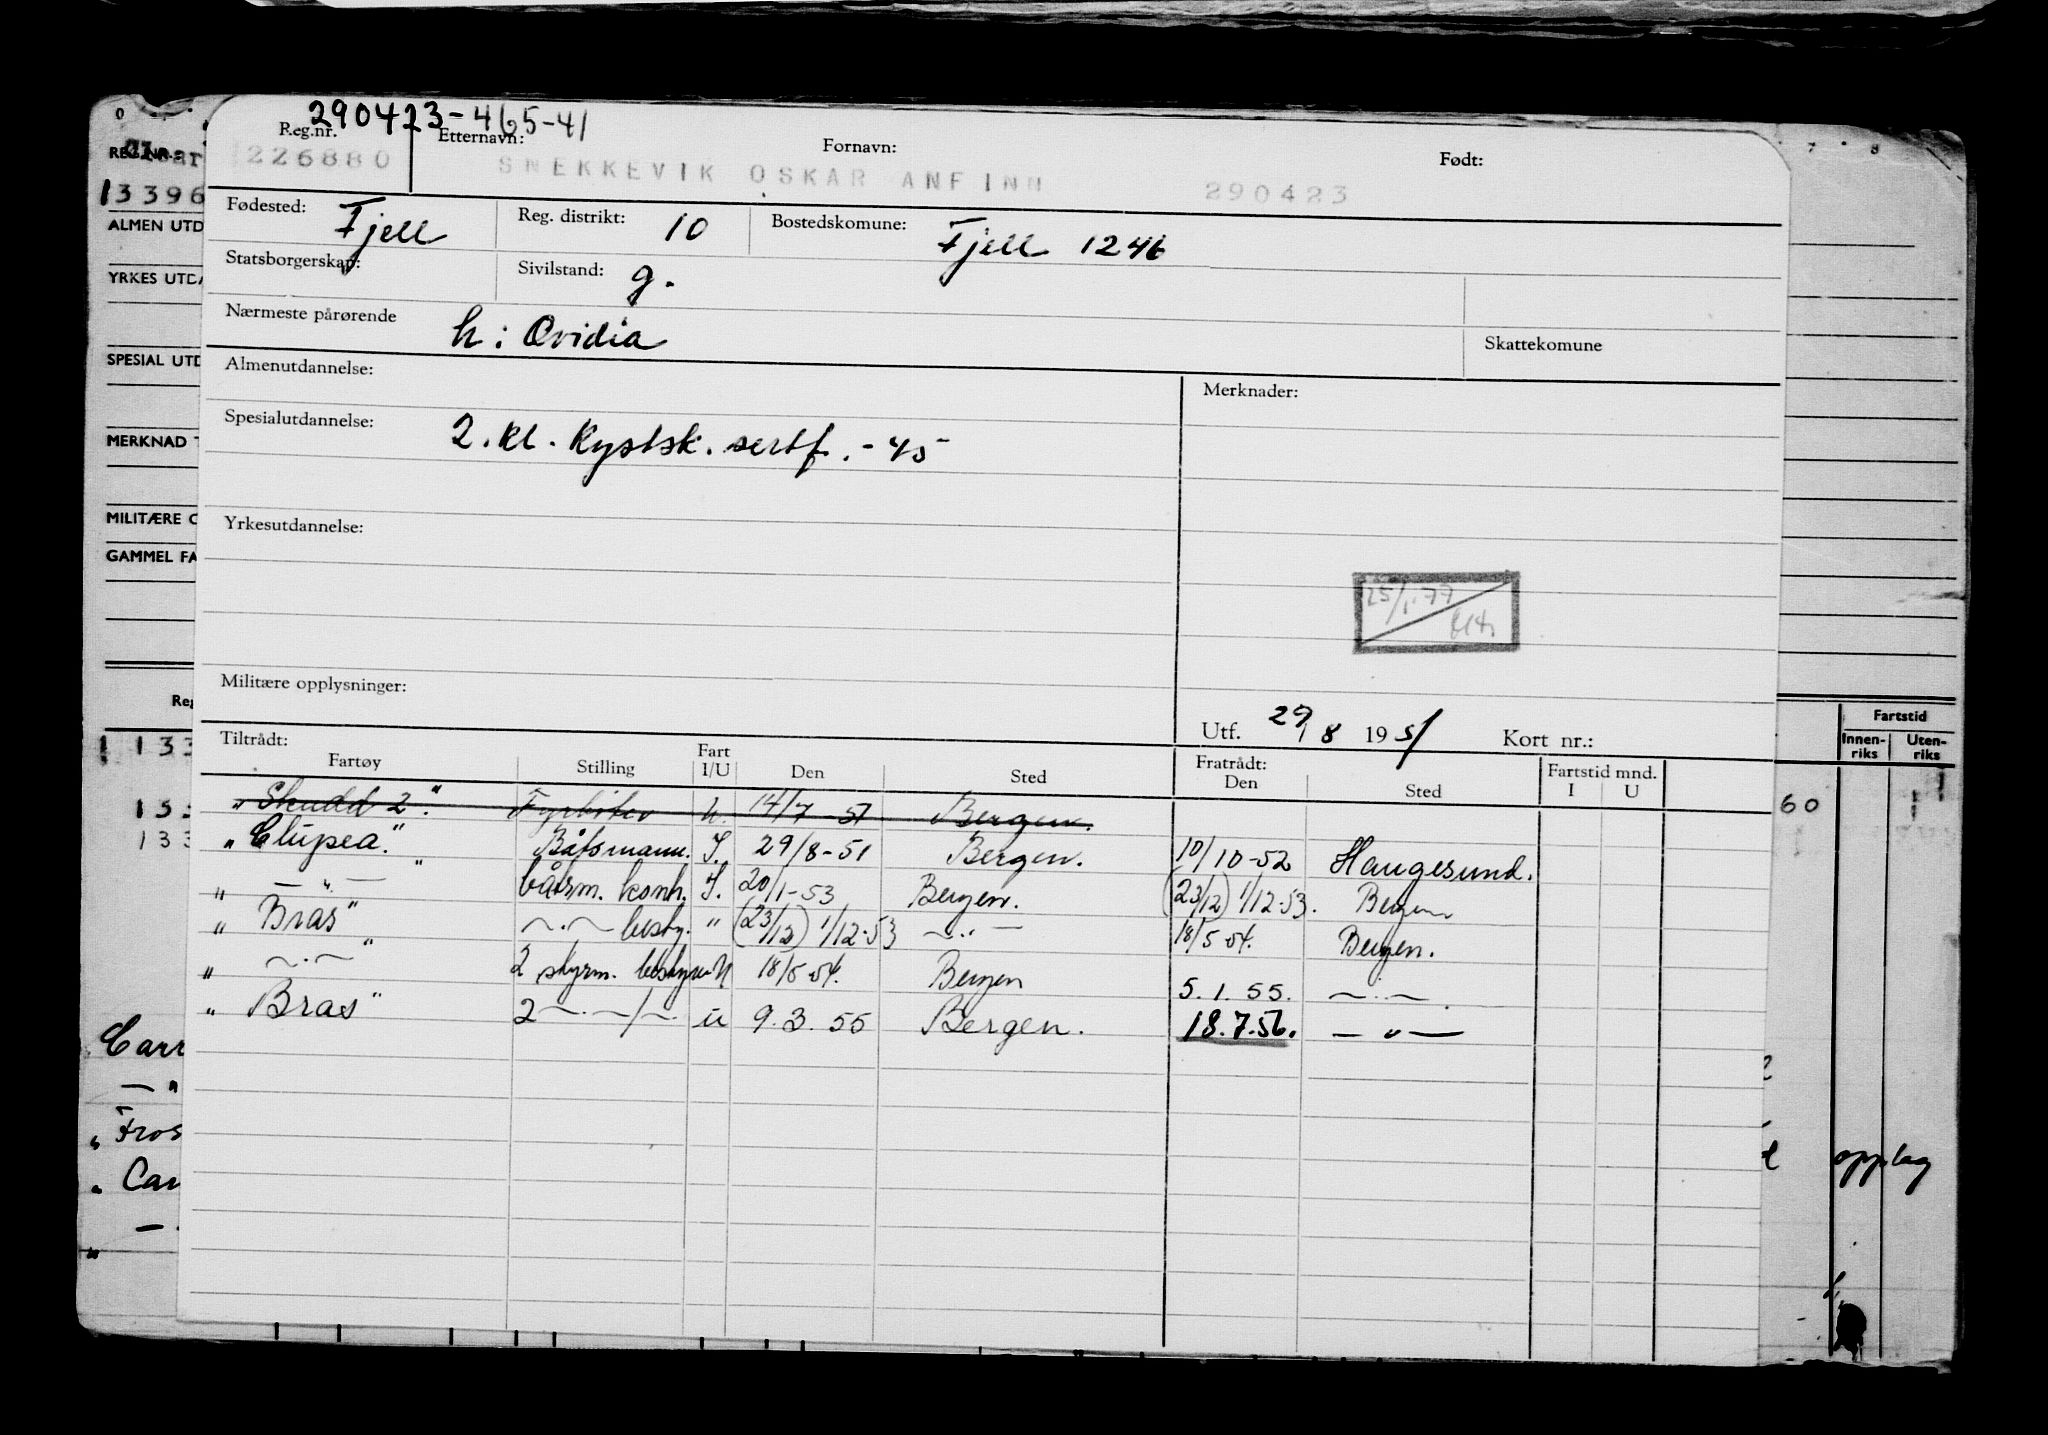 290423-465-41
Reg.nr. Etternavn: Fornavn: Født:
226880 SNEKKEVIK OSKAR ANFINN 290423
Fødested: Fjell Reg. distrikt: 10 Bostedskomune: Fjell 1246
Statsborgerskap: Sivilstand: g.
Nærmeste pårørende h: Ovidia Skattekomune
Almenutdannelse: Merknader:
Spesialutdannelse: 2. kl. Kystsk. sertf. -45
Yrkesutdannelse:
25/1.77
Militære opplysninger:
Utf. 29/8 1951 Kort nr.:
Tiltrådt: Fratrådt: Fartstid mnd.
Fartøy Stilling Fart I/U Den Sted Den Sted I U
"Skudd 2". Fyrbøter u. 14/7-51 Bergen.
"Clupea". Båtsmann. I. 29/8-51 Bergen. 10/10-52 Haugesund.
" — " — " båtsm. konh. I. 20/1-53 Bergen. (23/12) 1/12-53. Bergen
" Bras" —"— besty. " (23/12) 1/12-53 —"— 18/5-54. Bergen.
" —"— " 2 styrm. bestyrer U 18/5-54. Bergen 5.1.55. —"—.
" Bras" 2 —"—/—"— u 9.3.55 Bergen. 18.7.56. —"—
REG.NR.
13396
ALMEN UTD
YRKES UTDA
SPESIAL UTD
MERKNAD
MILITÆRE
GAMMEL FA
Reg
Fartstid
Innen-riks Uten-riks
1 133
133
133
60
Carr
— "
" Fros
" Can
opplag
7 8